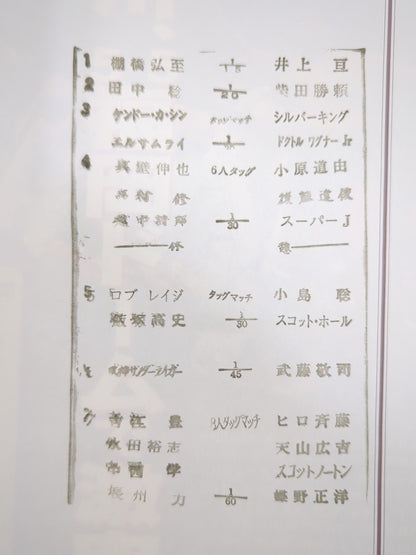 1 棚橋弘至 1/15 井上亘
2 田中稔 1/20 柴田勝頼
3 ケンドー・カ・シン タッグマッチ シルバーキング
エルサムライ ドクトルワグナーJr
4 真壁伸也 6人タッグ 小原道由
木村 修 後藤達俊
越中詩郎 1/30 スーパーJ
5 ロブ レイジ タッグマッチ 小島聡
飯塚高史 1/30 スコット・ホール
サンダーライガー 1/45 武藤敬司
7 吉江豊 8人タッグマッチ ヒロ斉藤
永田裕志 天山広吉
中西学 スコットノートン
長州力 1/60 蝶野正洋